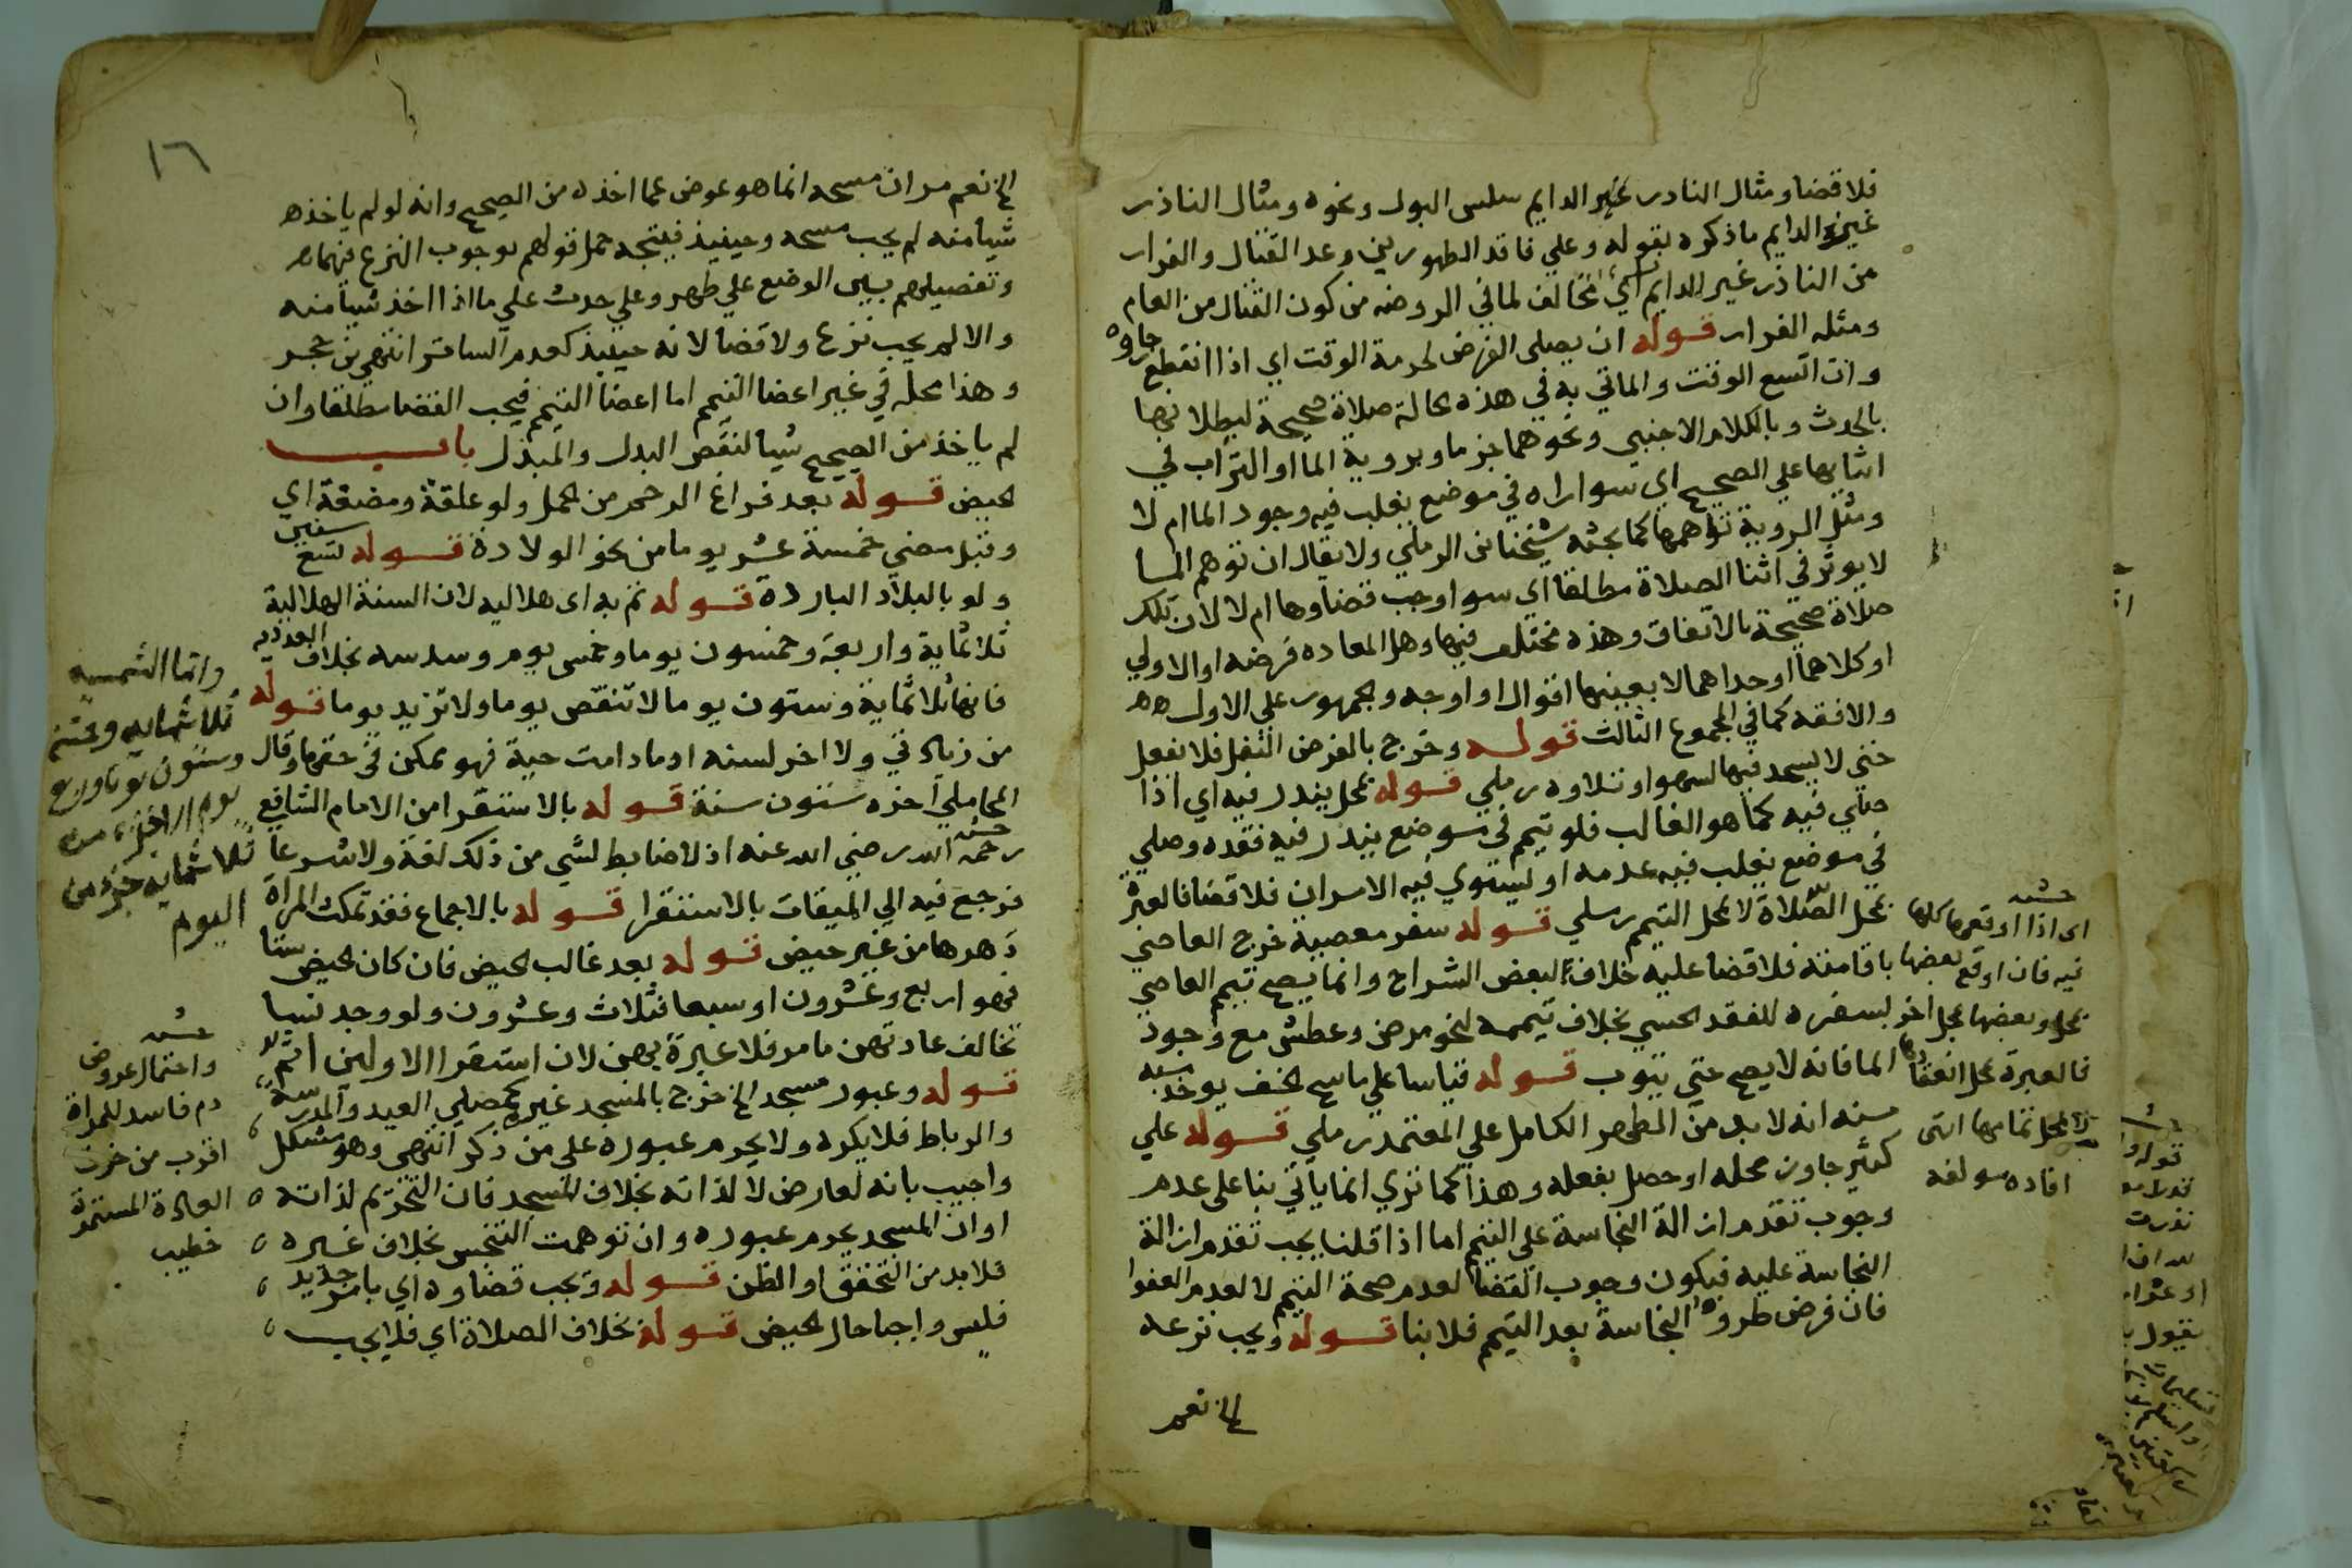 فلا قضا ومثال النادر غير الدايم سلس البول ونحوه ومثال النادر
غير الدايم ما ذكره بقوله وعلي فاقد الطهورين وعد القتال والفرار
من النادر غير الدايم اي مخالف لما في الروضه من كون القتال من العام
ومثله الفرار قوله ان يصلي الفرض لحرمة الوقت اي اذا انقطع رجاوه
وان اتسع الوقت والماتي به في هذه الحالة صلاة صحيحة ليبطلانها
بالحدث وبالكلام الاجنبي ونحوهما جزما وبروية الما او التراب في
اثنايها علي الصحيح اي سوا راه في موضع يغلب فيه وجود الما ام لا
ومثل الروية توهمها كما بحثه شيخنا الرملي ولا يقال ان توهم الما
لا يوثر في اثنا الصلاة مطلقا اي سوا وجب قضاوها ام لا لان تلك
صلاة صحيحة بالاتفاق وهذه مختلف فيها وهل المعاده فرضه او الاولي
او كلاهما او احداهما لا بعينها اقوال او اوجه والجمهور علي الاول
والافقه كما في المجموع الثالث قوله وخرج بالفرض النفل فلا يفعل
حتي لا يسجد فيها لسهو او تلاوه رملي قوله بمحل يندر فيه اي اذا
صلي فيه كما هو الغالب فلو تيمم في موضع يندر فيه فقده وصلي
في موضع يغلب فيه عدمه او يستوي فيه الامران فلا قضا فالعبرة
بمحل الصلاة لا بمحل التيمم رملي قوله سفر معصية خرج العاصي
باقامته فلا قضا عليه خلافا لبعض الشراح وانما يصح تيمم العاصي
بسفره للفقد الحسي بخلاف تيممه لنحو مرض وعطش مع وجود
الما فانه لا يصح حتي يتوب قوله قياسا علي ماسح الخف يوخذ
منه انه لا بد من الطهر الكامل علي المعتمد رملي قوله علي
كثير جاوز محله او حصل بفعله وهذا كما تري انما ياتي بنا علي عدم
وجوب تقدم ازالة النجاسة علي التيمم اما اذا قلنا يجب تقدم ازالة
النجاسة عليه فيكون وجوب القضا لعدم صحة التيمم لا لعدم العفوا
فان فرض طروه النجاسة بعد التيمم فلا بنا قوله ويجب نزعه
الخ نعم
اي اذا اوقعها كلها
فيه فان اوقع بعضها
بمحل وبعضها بمحل اخر
فالعبرة بمحل انعقادها
لا بمحل تمامها انتهى
افاده مولفه
١٦
الخ نعم مر ان مسحه انما هو عوض عما اخذه من الصحيح وانه لو لم ياخذ
شيا منه لم يجب مسحه وحينيذ فيتجه حمل قولهم بوجوب النزع فيهما
وتفصيلهم بين الوضع علي طهر وعلي حدث علي ما اذا اخذ شيا منه
والا لم يجب نزع ولا قضا لانه حينيذ كعدم الساتر انتهي بن حجر
وهذا محله في غير اعضا التيمم اما اعضا التيمم فيجب القضا مطلقا وان
لم ياخذ من الصحيح شيا لنقص البدل والمبدل باب
الحيض قوله بعد فراغ الرحم من الحمل ولو علقة ومضغة اي
وقبل مضي خمسة عشر يوما من نحو الولادة قوله تسع سنين
ولو بالبلاد البارده قوله قمريه اي هلاليه لان السنة الهلالية
ثلاثماية واربعة وخمسون يوما وخمس يوم وسدسه بخلاف العدديه
فانها ثلاثماية وستون يوما لا تنقص يوما ولا تزيد يوما قوله
من زياد تي ولا اخر لسنه او ما دامت حية فهو ممكن في حقها وقال
المحاملي اخره ستون سنة قوله بالاستقرا من الامام الشافعي
رحمه الله رضي الله عنه اذ لا ضابط لشي من ذلك لغة ولا شرعا
فرجع فيه الي الميقات بالاستقرا قوله بالاجماع فقد تمكث المراة
دهرها من غير حيض قوله بعد غالب الحيض فان كان الحيض ستا
فهو اربع وعشرون او سبعا فثلاث وعشرون ولو وجد نسا
تخالف عادتهن ما مر فلا عبرة بهن لان استقرا الاولين اتم
قوله وعبور مسجد الخ خرج بالمسجد غيره كمصلي العيد والمدرسة
والرباط فلا يكره ولا يحرم عبوره علي من ذكر انتهى وهو مشكل
واجيب بانه لعارض لا لذاته بخلاف المسجد فان التحريم لذاته
او ان المسجد يحرم عبوره وان توهمت التنجس بخلاف غيره
فلا بد من التحقق او الظن قوله ويجب قضاوه اي بامر جديد
فليس واجبا حال الحيض قوله بخلاف الصلاة اي فلا يجب
واما الشمسيه
ثلاثمايه وخمسه
وستون يوما وربع
يوم الا جزء من
ثلاثمايه جزء من
اليوم
واحتمال عروض
دم فاسد للمراة
اقرب من خرق
العادة المستمرة
خطيب